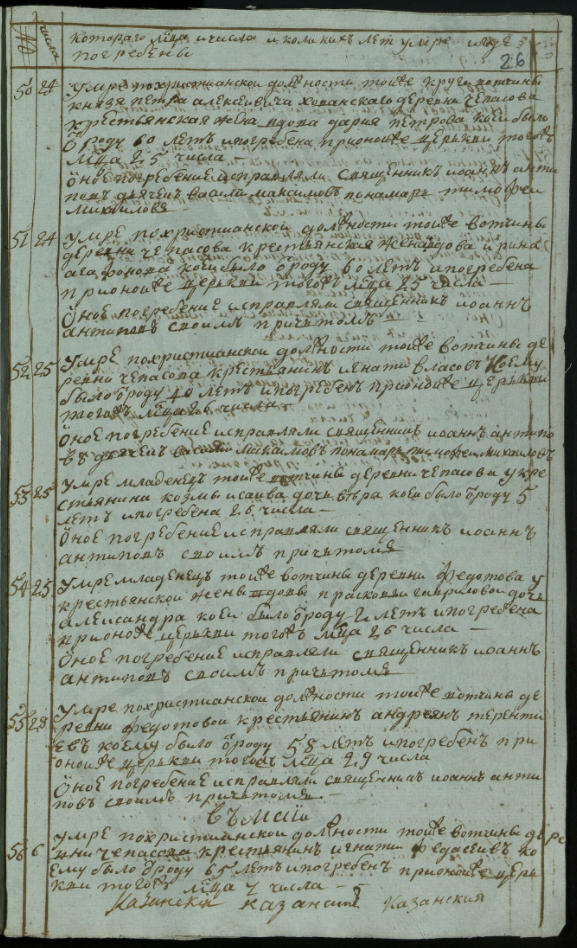 числа которого мца и числа и коликихъ летъ умре и где
погребены
26
50 24 умре похристианской должности тоиже круги вотчины
князя петра алексеевича хованскаго деревни чепасова
крестьянская жена вдова дарья петрова коеи было
ѿроду 60 летъ ипогребена прионоиже церькви тогожъ
мца 25 числа —
Оное погребение исправляли священникъ иоаннъ анти
повъ дьячекъ василеи максимовъ понамарь тимофеи
михаиловъ —
51 24 умре похристианской должности тоиже вотчины
деревни чепасова крестьянская жена вдова ирина
агафонова коеи было ѿроду 60 летъ ипогребена
прионоиже церькви тогожъ мца 25 числа —
Оное погребение исправляли священникъ иоаннъ
антиповъ своимъ причьтомъ
52 25 умре похристианской должности тоиже вотчины де
ревни чепасова крестьянинъ игнати власовъ коему
было ѿроду 40 летъ ипогребенъ прионоиже церькви
тогожъ мца 26 числа
Оное погребение исправляли священникъ иоаннъ антипо
въ дьячекъ василеи максимовъ понамарь тимофеи михаиловъ
53 25 умре младенецъ тоиже вотчины деревни чепасова у кре
стьянина козмы исаива дочь вѣра коеи было ѿроду 5
летъ ипогребена 26 числа —
Оное погребение исправляли священникъ иоаннъ
антиповъ своимъ причьтомъ
54 25 умре младенецъ тоиже вотчины деревни федотова у
крестьянской жены вдовы прасковьи гавриловои дочь
александра коеи было ѿроду 2 летъ ипогребена
прионоиже церькви тогожъ мца 26 числа —
Оное погребение исправляли священникъ иоаннъ
антиповъ своимъ причьтомъ
55 28 умре похристианской должности тоиже вотчины де
ревни федотовои крестьянинъ андреянъ терентье
евъ коему было ѿроду 58 летъ ипогребенъ при
оноиже церькви тогожъ мца 29 числа
Оное погребение исправляли священникъ иоаннъ анти
повъ своимъ причьтомъ
въ маии
56 6 умре похристианской должности тоиже вотчины дере
вни чепасова крестьянинъ игнати федасеивъ ко
ему было ѿроду 65 летъ ипогребенъ прионоиже церь
кви тогожъ мца 7 числа —
Казанскии казанскии Казанския